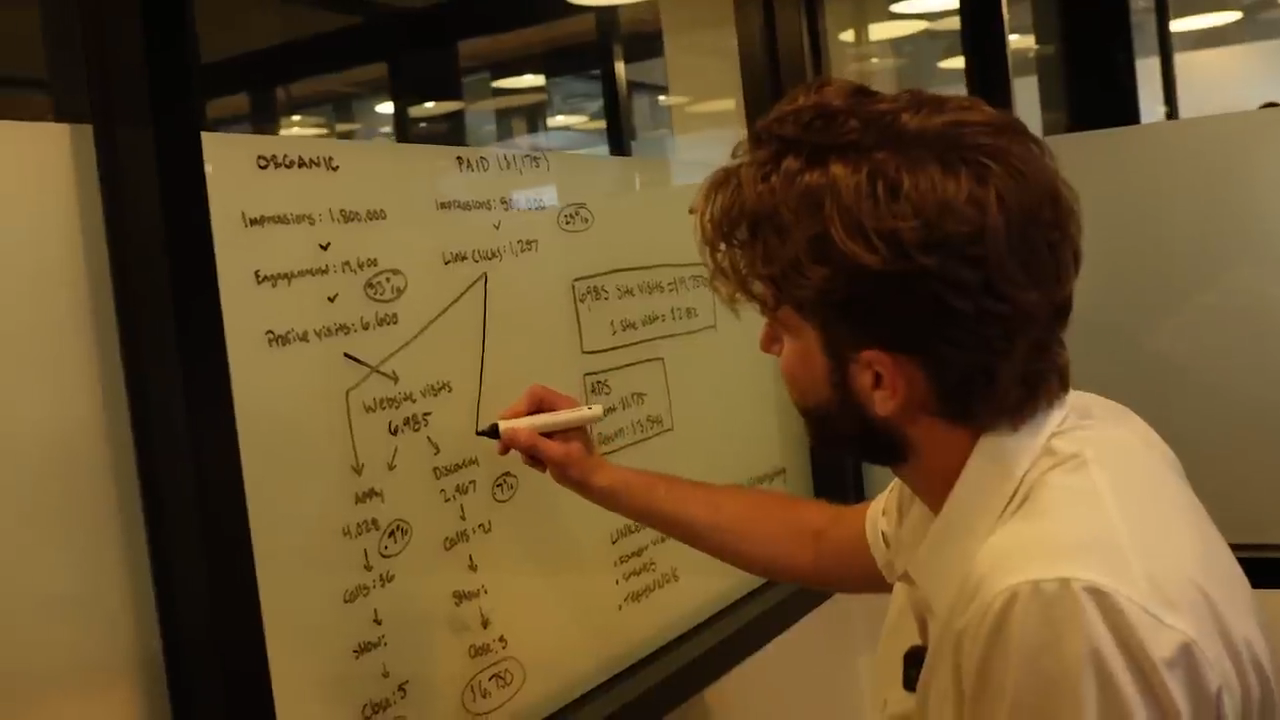 ORGANIC
Impressions: 1,800,000
Engagement: 19,600
33%
Profile visits: 6,600
PAID ($1,175)
Impressions: 500,000
.25%
Link Clicks: 1,257
Website visits
6,985
Apply
4,028
.9%
Calls: 36
Show:
Close: 5
Discovery
2,967
.7%
Calls: 21
Show:
Close: 3
16,750
6985 Site visits =
1 Site visit = $2.82
ADS
: 1,175
Return: $3,544